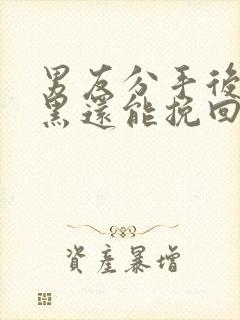 男友分手後
黑還能挽回
資產暴增